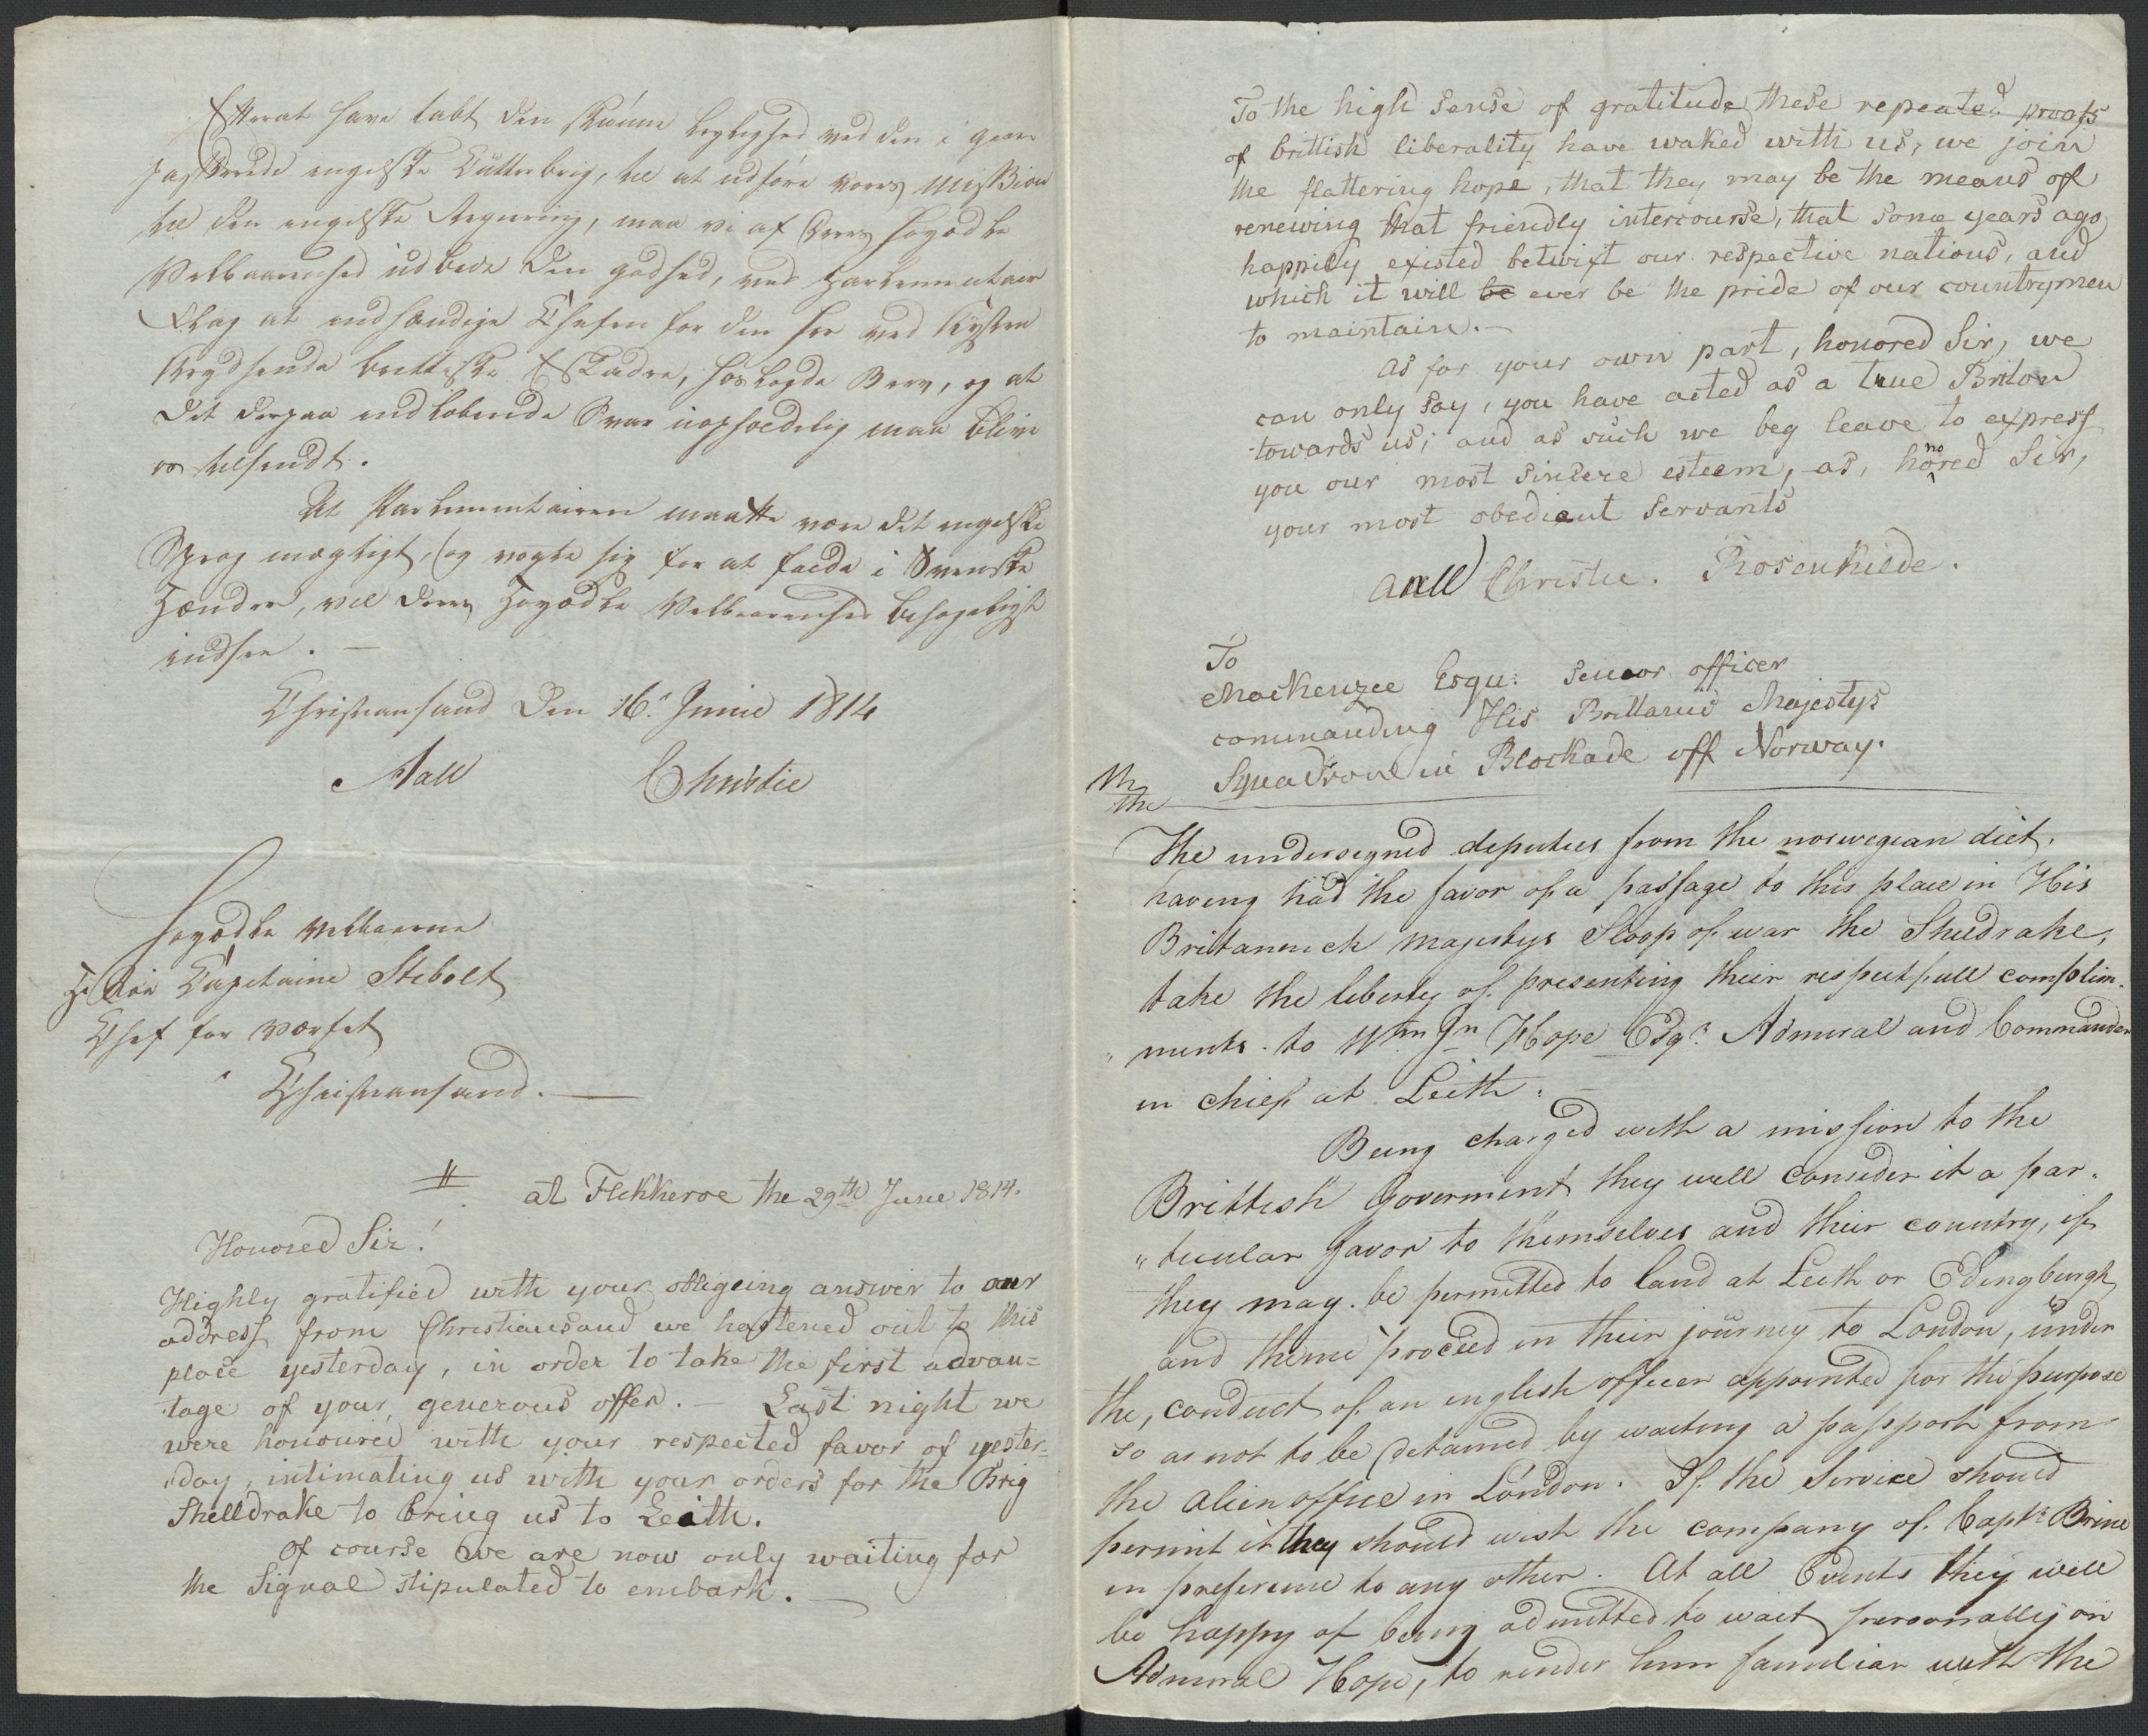 Efterat have tabt den skiønne Leylighed ved den i gaar
passerede engelske Cutterbrig, til at udføre vores Mission
til den engelske Regiering, maa vi af Deres Høyædle
Velbaarenhed udbede den godhed, ved Parlementair
Flag at indhændige Chefen for den her ved Kysten
krydsende brittiske Eskadre, hoslagde Brev, og at
det derpaa indløbende Svar uopholdelig maa blive
os tilsendt.
At Parlementairen maatte være det engelske
Sprog mægtigt, og vogte sig for at falde i Svenske
Hænder, vil Deres Høyædle Velbaarenhed behageligst
indsee. —
Christiansand den 16. Junii 1814
Aall Christie
Høyædle Velbaarne
Herr Capitaine Stibolt
Chef for Værfet
Christiansand. —
#
at Flekkeroe the 29th June 1814.
Honored Sir!
Highly gratified with your obligeing answer to our
address from Christiansand we hastened out to this
place yesterday, in order to take the first advan=
tage of your generous offer. — Last night we
were honoured with your respected favor of yester-
day, intimating us with your orders for the Brig
Shelldrake to bring us to Leith.
Of course we are now only waiting for
the Signal stipulated to embark. —
To the high sense of gratitude these repeated proofs
of brittish liberality have waked with us, we join
the flattering hope, that they may be the means of
renewing that friendly intercourse, that some years ago
happily existed betwixt our respective nations, and
which it will be ever be the pride of our countrymen
to maintain. —
As for your own part, honored Sir, we
can only say, you have acted as a true Briton
towards us; and as such we beg leave to express
you our most sincere esteem, as, honored Sir,
your most obedient Servants
Aall Christie. Rosenkilde.
To
Mackenzee Esqu: senior officer
commanding His Brittanic Majestys
Squadrone in Blockade off Norway.
The
The undersigned deputies from the norwegian diet,
having had the favor of a passage to this place in His
Britannick Majestys Sloop of war the Sheldrake,
take the liberty of presenting their respectfull complim-
ments to Wm Jn Hope Esqr. Admiral and Commander
in chief at Leith. —
Being charged with a mission to the
Brittish Goverment they will consider it a par-
ticular favor to themselves and their country, if
they may be permitted to land at Leith or Edingburgh
and thence proceed in their journey to London, under
the conduct of an english officer appointed for the purpose
so as not to be detained by waiting a passport from
the alien office in London. If the Service should
permit it they should wish the company of Captn Brine
in preference to any other. At all Events they will
be happy of being admitted to wait personally on
Admiral Hope, to render him familiar with the